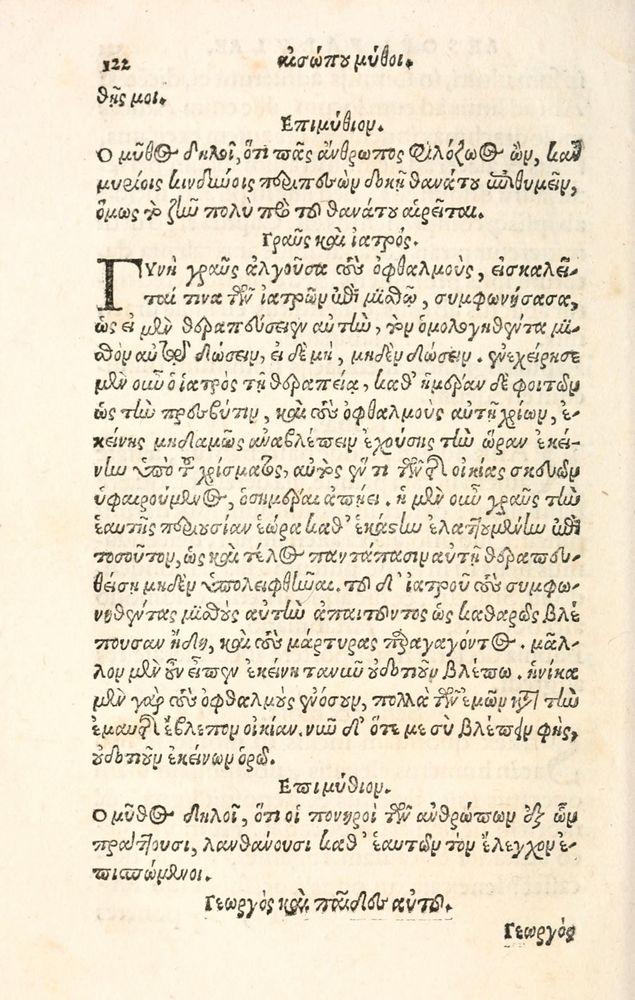 122 αἰσώπου μῦθοι.
θῇς μοι.
Ἐπιμύθιον.
Ὁ μῦθος δηλοῖ, ὅτι πᾶς ἄνθρωπος φιλόζωος ὢν, κἂν
μυρίοις κινδύνοις περιπεσὼν δοκῇ θανάτου ἐπιθυμεῖν,
ὅμως τὸ ζῆν πολὺ πρὸ τοῦ θανάτου αἱρεῖται.
Γραῦς καὶ ἰατρός.
ΓΥνὴ γραῦς ἀλγοῦσα τοὺς ὀφθαλμοὺς, εἰσκαλεῖ-
ταί τινα τῶν ἰατρῶν ἐπὶ μισθῷ, συμφωνήσασα,
ὡς εἰ μὲν θεραπεύσειεν αὐτὴν, τὸν ὁμολογηθέντα μι-
σθὸν αὐτῷ δώσειν, εἰ δὲ μὴ, μηδὲν δώσειν. ἐνεχείρησε
μὲν οὖν ὁ ἰατρὸς τῇ θεραπείᾳ, καθ' ἡμέραν δὲ φοιτῶν
ὡς τὴν πρεσβύτιν, καὶ τοὺς ὀφθαλμοὺς αὐτῇ χρίων, ἐ-
κείνης μηδαμῶς ἀναβλέπειν ἐχούσης τὴν ὥραν ἐκεί-
νην ὑπὸ τοῦ χρίσματος, αὐτὸς ἕν τι τῶν τῆς οἰκίας σκευῶν
ὑφαιρούμενος, ὁσημέραι ἀπῄει. ἡ μὲν οὖν γραῦς τὴν
ἑαυτῆς περιουσίαν ἑώρα καθ' ἑκάστην ἐλαττουμένην ἐπὶ
τοσοῦτον, ὡς καὶ τέλος παντάπασιν αὐτῇ θεραπευ-
θείσῃ μηδὲν ὑπολειφθῆναι. τοῦ δ' ἰατροῦ τοὺς συμφω-
νηθέντας μισθοὺς αὐτὴν ἀπαιτοῦντος ὡς καθαρῶς βλέ
πουσαν ἤδη, καὶ τοὺς μάρτυρας παραγαγόντος. μᾶλ-
λον μὲν οὖν εἶπεν ἐκείνη τανῦν οὐδοτιοῦν βλέπω. ἡνίκα
μὲν γὰρ τοὺς ὀφθαλμοὺς ἐνόσουν, πολλὰ τῶν ἐμῶν κατὰ τὴν
ἐμαυτῆς ἔβλεπον οἰκίαν. νῦν δ' ὅτε με σὺ βλέπειν φῂς,
οὐδοτιοῦν ἐκείνων ὁρῶ.
Ἐπιμύθιον.
Ὁ μῦθος δηλοῖ, ὅτι οἱ πονηροὶ τῶν ἀνθρώπων ἐξ ὧν
πράττουσι, λανθάνουσι καθ' ἑαυτῶν τὸν ἔλεγχον ἐ-
πισπώμενοι.
Γεωργὸς καὶ παῖδες αὐτοῦ.
Γεωργός